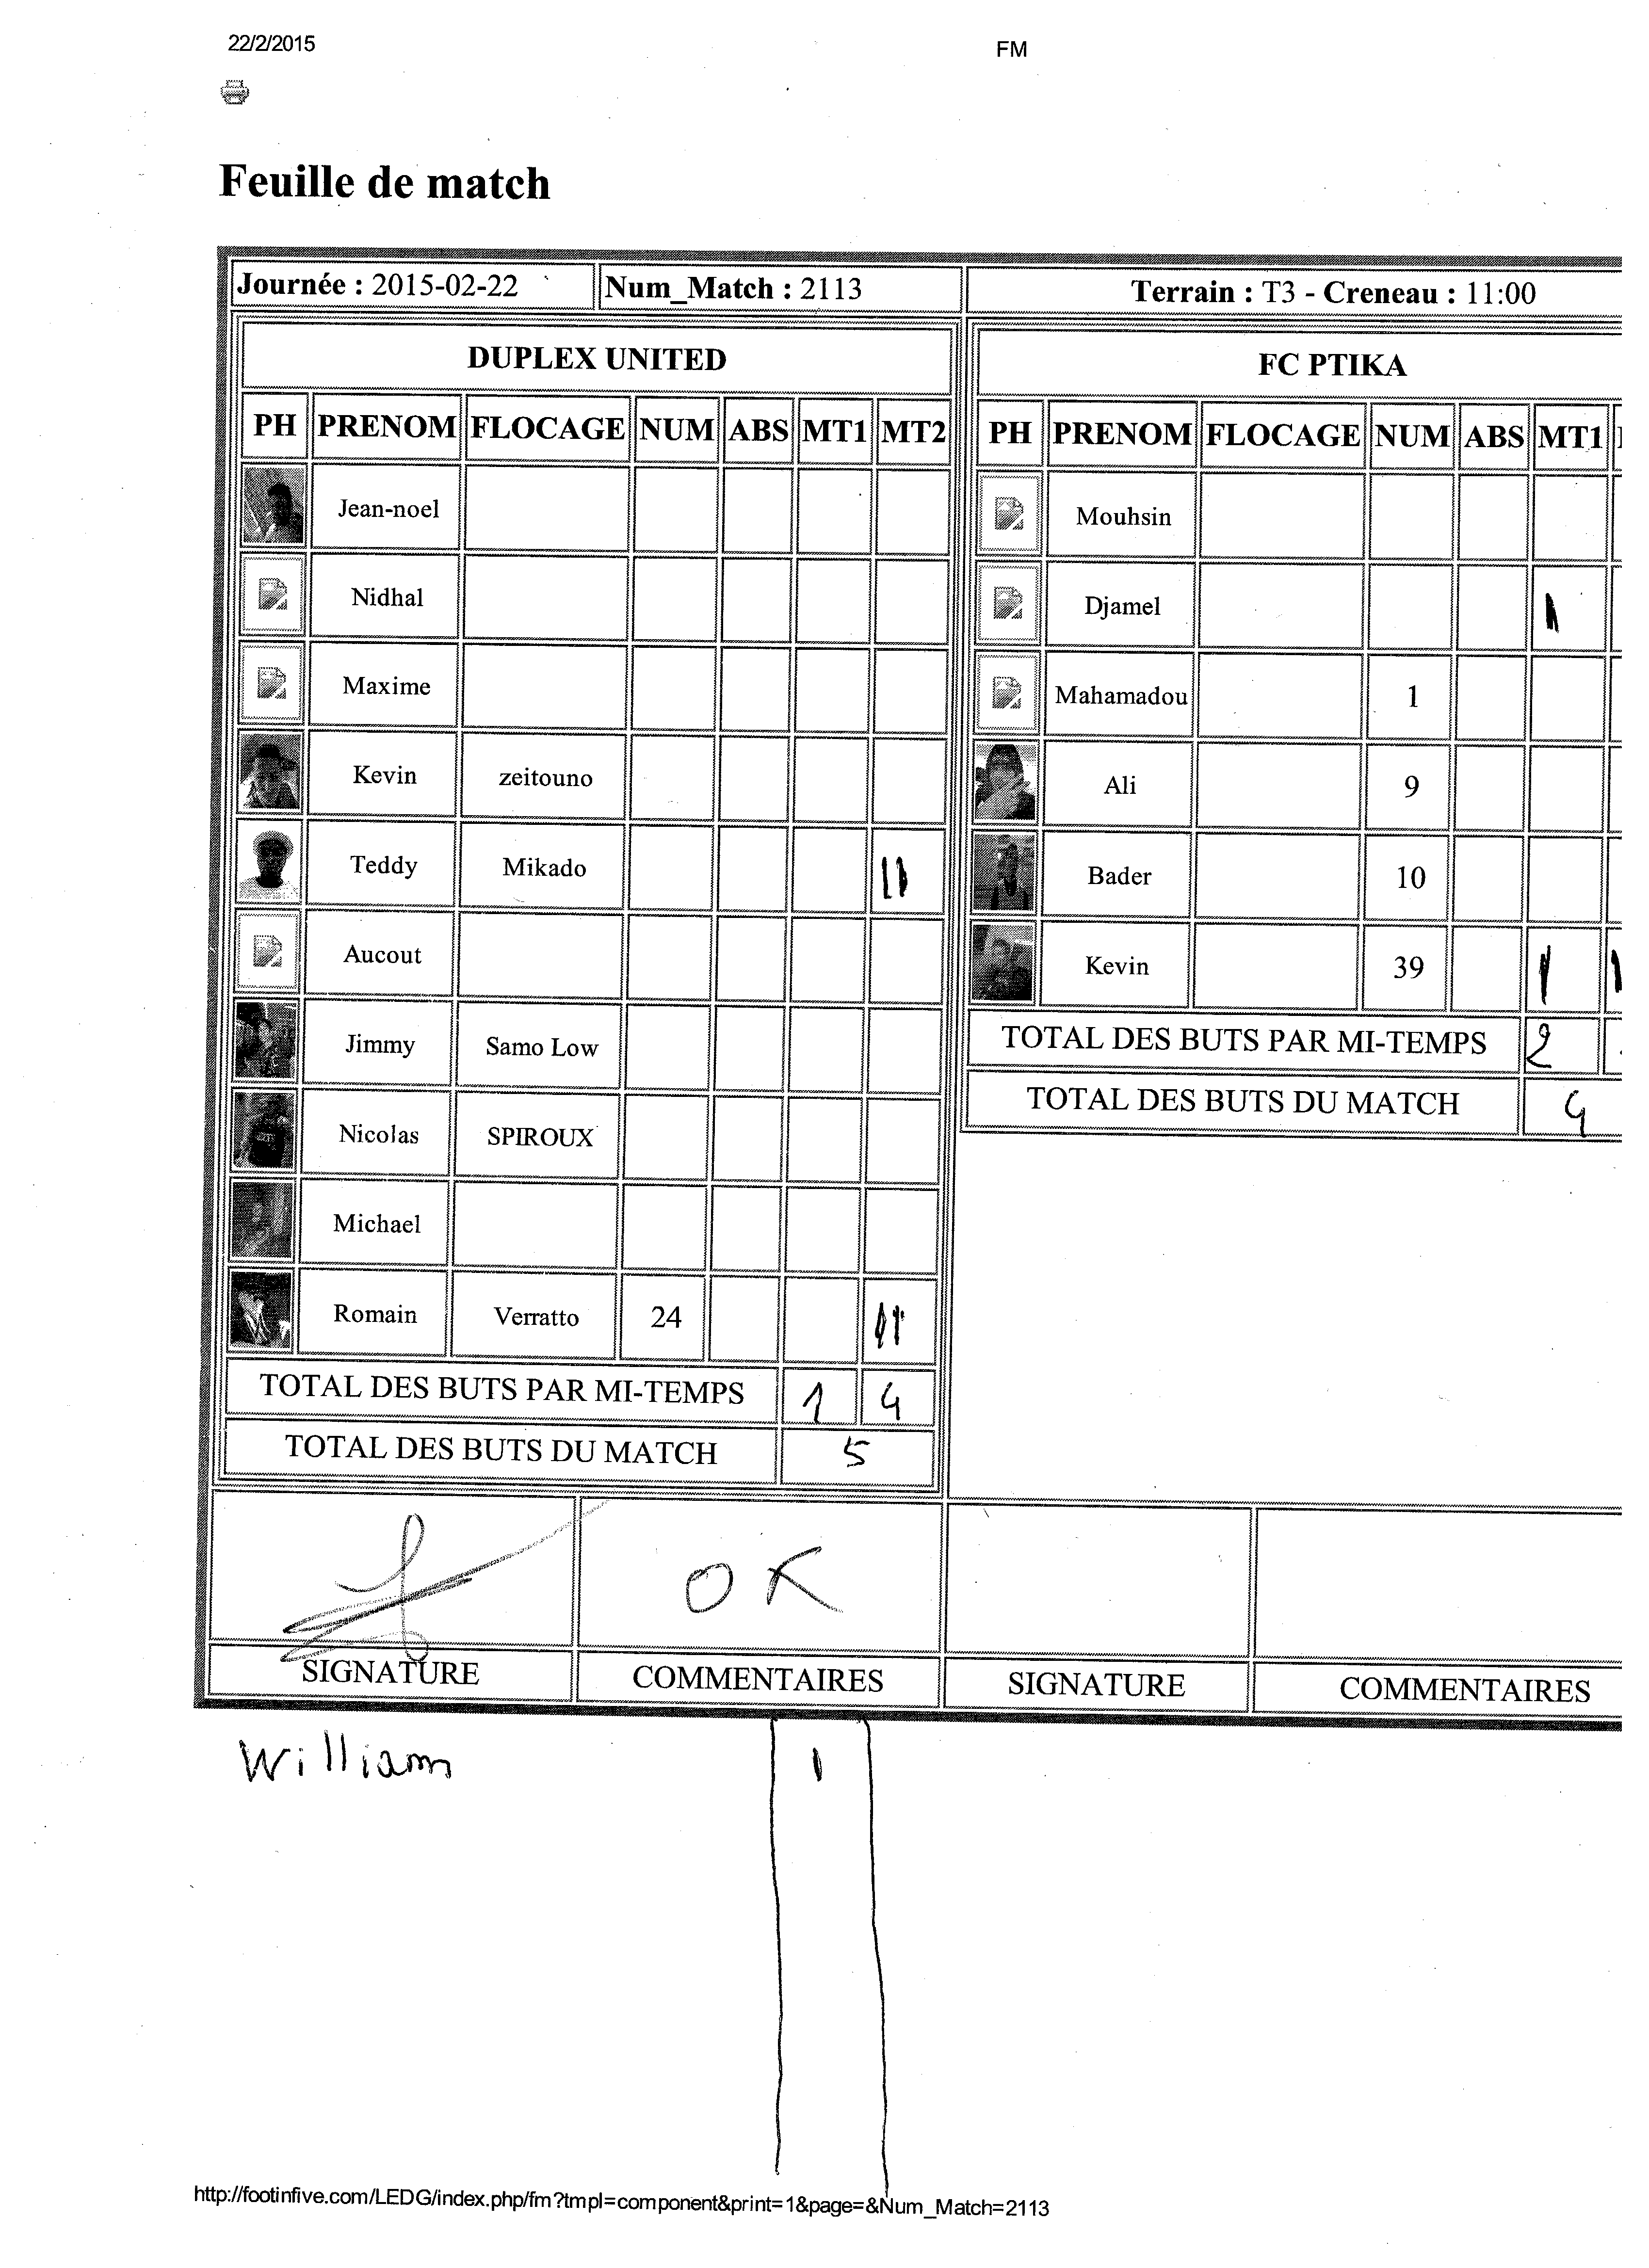 22/2/2015 FM
Feuille de match
Journée : 2015-02-22 Num_Match : 2113 Terrain : T3 - Creneau : 11:00
DUPLEX UNITED
PH PRENOM FLOCAGE NUM ABS MT1 MT2
Jean-noel
Nidhal
Maxime
Kevin zeitouno
Teddy Mikado 11
Aucout
Jimmy Samo Low
Nicolas SPIROUX
Michael
Romain Verratto 24 11
TOTAL DES BUTS PAR MI-TEMPS 1 4
TOTAL DES BUTS DU MATCH 5
FC PTIKA
PH PRENOM FLOCAGE NUM ABS MT1
Mouhsin
Djamel 1
Mahamadou 1
Ali 9
Bader 10
Kevin 39 1 1
TOTAL DES BUTS PAR MI-TEMPS 2
TOTAL DES BUTS DU MATCH 4
OK
SIGNATURE COMMENTAIRES SIGNATURE COMMENTAIRES
William 1
http://footinfive.com/LEDG/index.php/fm?tmpl=component&print=1&page=&Num_Match=2113